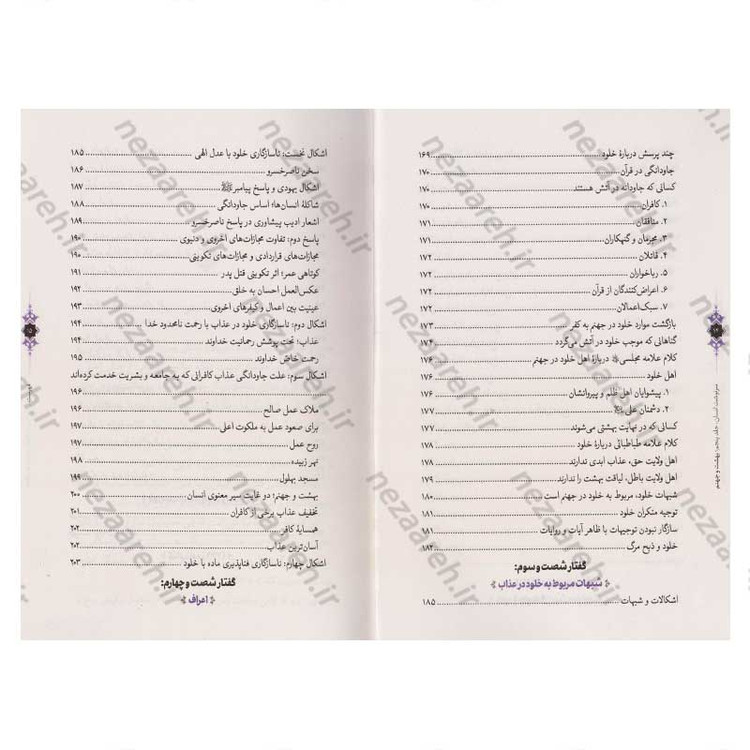 چند پرسش دربارهٔ خلود ........ ۱۶۹
جاودانگی در قرآن ........ ۱۷۰
کسانی که جاودانه در آتش هستند ........ ۱۷۰
۱. کافران ........ ۱۷۰
۲. منافقان ........ ۱۷۱
۳. مجرمان و گنهکاران ........ ۱۷۱
۴. قاتلان ........ ۱۷۲
۵. رباخواران ........ ۱۷۲
۶. اعراض‌کنندگان از قرآن ........ ۱۷۲
۷. سبک‌اعمالان ........ ۱۷۲
بازگشت موارد خلود در جهنم به کفر ........ ۱۷۳
گناهانی که موجب خلود در آتش می‌گردد ........ ۱۷۴
کلام علامه مجلسی دربارهٔ اهل خلود در جهنم ........ ۱۷۶
اهل خلود ........ ۱۷۶
۱. پیشوایان اهل ظلم و پیروانشان ........ ۱۷۶
۲. دشمنان علی ........ ۱۷۷
کسانی که در نهایت بهشتی می‌شوند ........ ۱۷۷
کلام علامه طباطبائی دربارهٔ خلود ........ ۱۷۸
اهل ولایت حق، عذاب ابدی ندارند ........ ۱۷۸
اهل ولایت باطل، لیاقت بهشت را ندارند ........ ۱۷۹
شبهات خلود، مربوط به خلود در جهنم است ........ ۱۸۰
توجیه منکران خلود ........ ۱۸۱
سازگار نبودن توجیهات با ظاهر آیات و روایات ........ ۱۸۱
خلود و ذبح مرگ ........ ۱۸۲
گفتار شصت و سوم:
شبهات مربوط به خلود در عذاب
اشکالات و شبهات ........ ۱۸۵
سرنوشت انسان، جلد پنجم: بهشت و جهنم
اشکال نخست: ناسازگاری خلود با عدل الهی ........ ۱۸۵
سخن ناصرخسرو ........ ۱۸۶
اشکال یهودی و پاسخ پیامبر ﷺ ........ ۱۸۷
شاکلهٔ انسان‌ها؛ اساس جاودانگی ........ ۱۸۸
اشعار ادیب پیشاوری در پاسخ ناصرخسرو ........ ۱۸۹
پاسخ دوم: تفاوت مجازات‌های اخروی و دنیوی ........ ۱۹۰
مجازات‌های قراردادی و مجازات‌های تکوینی ........ ۱۹۰
کوتاهی عمر؛ اثر تکوینی قتل پدر ........ ۱۹۱
عکس‌العمل احسان به خلق ........ ۱۹۲
عینیت بین اعمال و کیفرهای اخروی ........ ۱۹۳
اشکال دوم: ناسازگاری خلود در عذاب با رحمت نامحدود خدا ........ ۱۹۴
عذاب؛ تحت پوشش رحمانیت خداوند ........ ۱۹۴
رحمت خاصّ خداوند ........ ۱۹۵
اشکال سوم: علت جاودانگی عذاب کافرانی که به جامعه و بشریت خدمت کرده‌اند
........ ۱۹۶
ملاک عمل صالح ........ ۱۹۶
برای صعود عمل به ملکوت اعلی ........ ۱۹۷
روح عمل ........ ۱۹۷
نهر زبیده ........ ۱۹۸
مسجد بهلول ........ ۱۹۹
بهشت و جهنم؛ دو غایت سیر معنوی انسان ........ ۲۰۰
تخفیف عذاب برخی از کافران ........ ۲۰۱
همسایهٔ کافر ........ ۲۰۲
آسان‌ترین عذاب ........ ۲۰۲
اشکال چهارم: ناسازگاری فناپذیری ماده با خلود ........ ۲۰۳
گفتار شصت و چهارم:
اعراف
nezaareh.ir